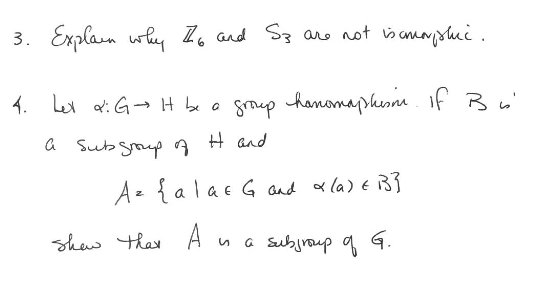 3. Explain why ℤ₆ and S₃ are not isomorphic.
4. Let α: G → H be a group homomorphism. If B is
a subgroup of H and
A = { a | a ∈ G and α(a) ∈ B}
show that A is a subgroup of G.